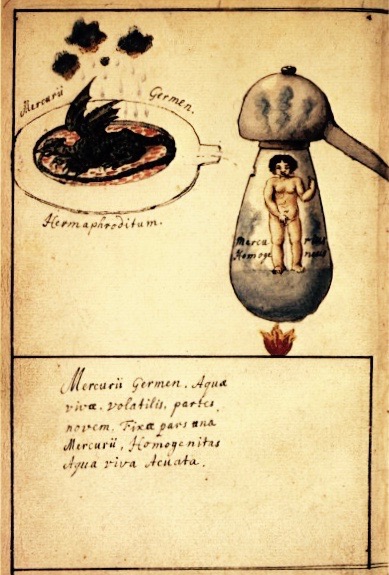 Mercurii
Germen.
Hermaphroditum.
Mercu rius
Homoge neus
Mercurii Germen. Aqua
vivæ. volatilis, partes
novem. Fixæ pars una
Mercurii, Homogenitas
Aqua viva Acuata.